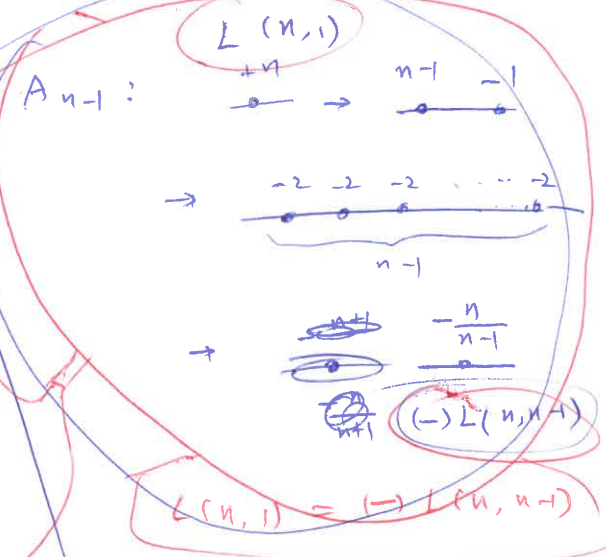 L (n,1)
A n-1 : +n → n-1 -1
→ -2 -2 -2 ... -2
n-1
→ -n/(n-1)
n+1 (-) L(n,n-1)
L(n,1) = (-) L(n,n-1)